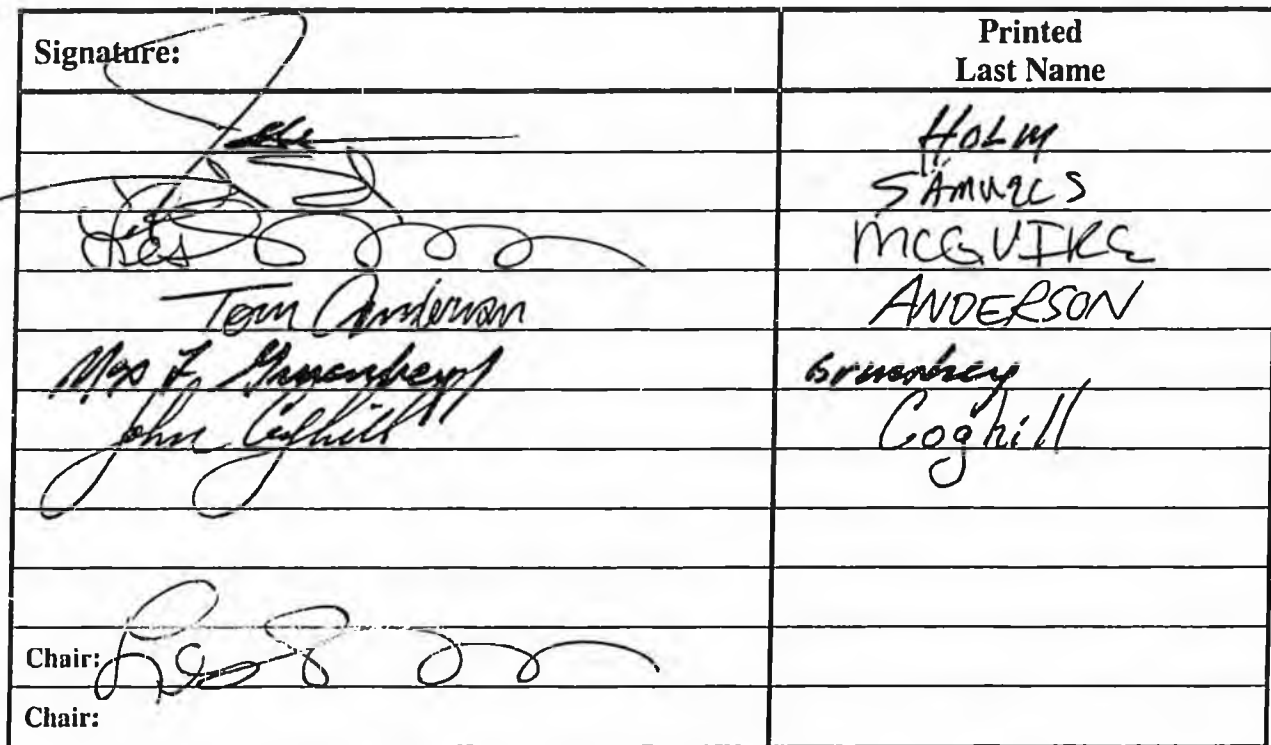 Signature: Printed
Last Name
HOLM
SAMUELS
MCGUIRE
Tom Anderson ANDERSON
Max F. Gruenberg Gruenberg
John Coghill Coghill
Chair:
Chair: